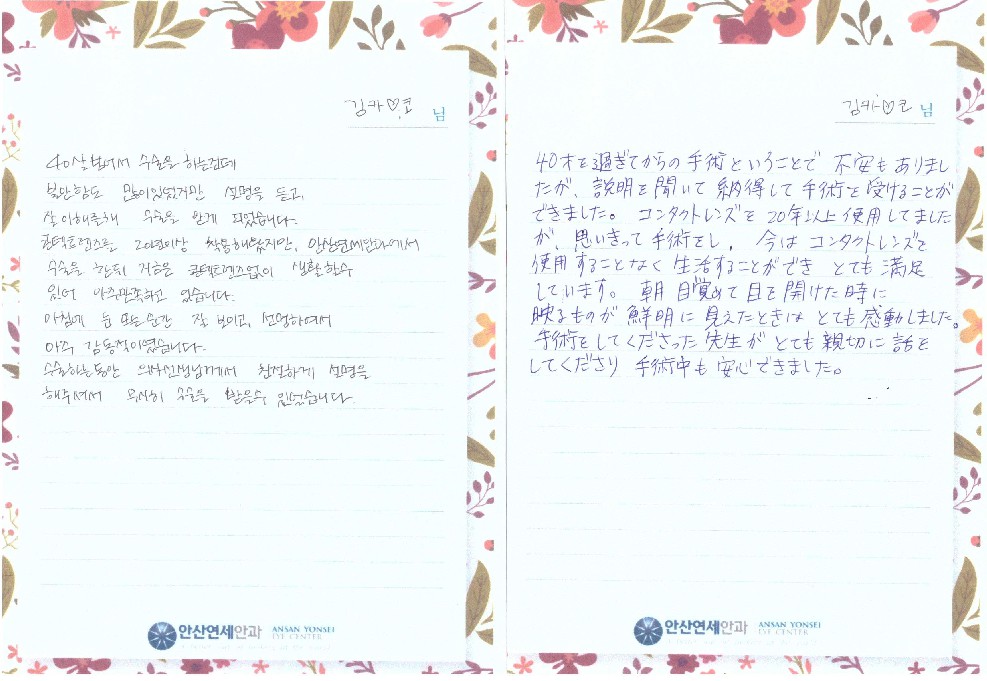 김카♡코 님
40살 넘어서 수술을 하는건데
불안함도 많이 있었지만 설명을 듣고,
잘 이해를 해 수술을 받게 되었습니다.
콘텍트렌즈를 20년이상 착용해 왔지만, 안산연세안과에서
수술을 한뒤 지금은 콘텍트렌즈없이 생활할수
있어 아주만족하고 있습니다.
아침에 눈 뜨는순간 잘 보이고, 선명하여서
아주 감동적이였습니다.
수술하는동안 의사선생님께서 친절하게 설명을
해주셔서 무사히 수술을 받을수 있었습니다.
안산연세안과 ANSAN YONSEI
EYE CENTER
김카♡코 님
40才を過ぎてからの手術ということで 不安もありまし
たが、説明を聞いて 納得して 手術を受けることが
できました。 コンタクトレンズを 20年以上使用してました
が、思いきって手術をし、 今は コンタクトレンズを
使用することなく 生活することができ とても 満足
しています。 朝 目覚めて 目を開けた時に
映るものが 鮮明に見えたときは とても感動しました。
手術をしてくださった 先生が とても親切に 話を
してくださり 手術中も 安心できました。
안산연세안과 ANSAN YONSEI
EYE CENTER